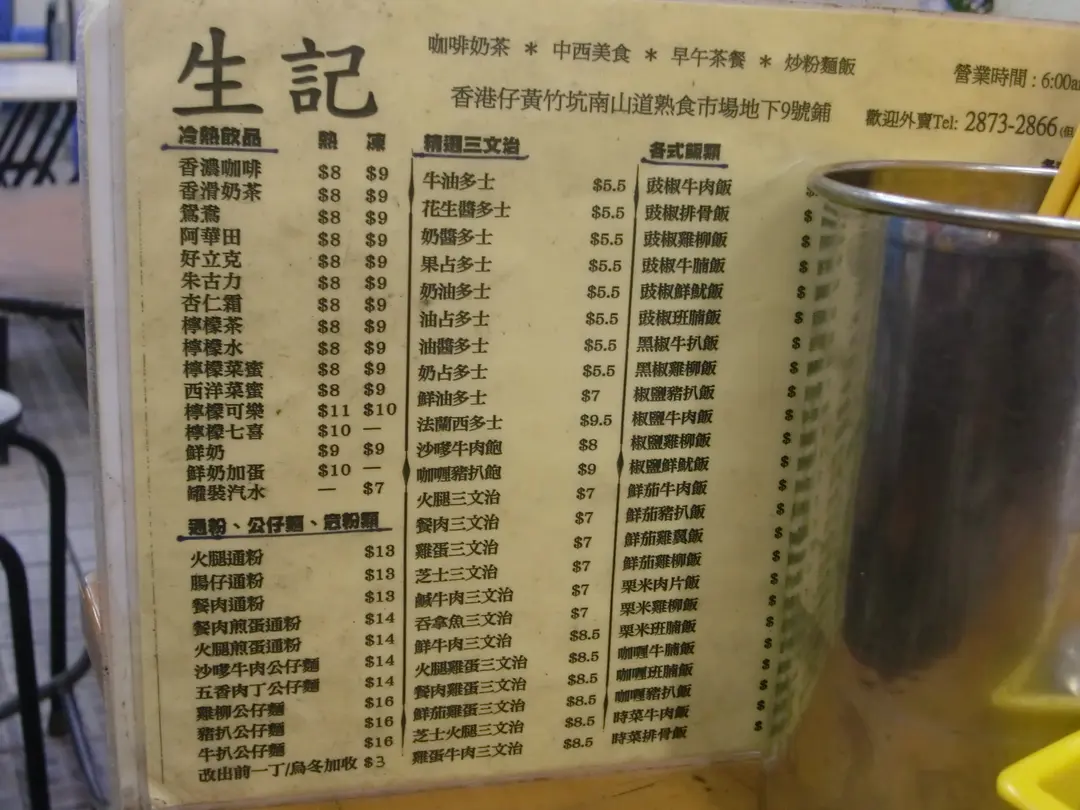 生記
咖啡奶茶 * 中西美食 * 早午茶餐 * 炒粉麵飯
香港仔黃竹坑南山道熟食市場地下9號鋪
營業時間 : 6:00a
歡迎外賣Tel: 2873-2866
冷熱飲品 熱 凍
香濃咖啡 $8 $9
香滑奶茶 $8 $9
鴛鴦 $8 $9
阿華田 $8 $9
好立克 $8 $9
朱古力 $8 $9
杏仁霜 $8 $9
檸檬茶 $8 $9
檸檬水 $8 $9
檸檬菜蜜 $8 $9
西洋菜蜜 $8 $9
檸檬可樂 $11 $10
檸檬七喜 $10 —
鮮奶 $9 $9
鮮奶加蛋 $10 —
罐裝汽水 — $7
通粉、公仔麵、意粉類
火腿通粉 $13
腸仔通粉 $13
餐肉通粉 $13
餐肉煎蛋通粉 $14
火腿煎蛋通粉 $14
沙嗲牛肉公仔麵 $14
五香肉丁公仔麵 $14
雞柳公仔麵 $16
豬扒公仔麵 $16
牛扒公仔麵 $16
改出前一丁/烏冬加收 $3
精選三文治
牛油多士 $5.5
花生醬多士 $5.5
奶醬多士 $5.5
果占多士 $5.5
奶油多士 $5.5
油占多士 $5.5
油醬多士 $5.5
奶占多士 $5.5
鮮油多士 $7
法蘭西多士 $9.5
沙嗲牛肉飽 $8
咖喱豬扒飽 $9
火腿三文治 $7
餐肉三文治 $7
雞蛋三文治 $7
芝士三文治 $7
鹹牛肉三文治 $7
吞拿魚三文治 $7
鮮牛肉三文治 $8.5
火腿雞蛋三文治 $8.5
餐肉雞蛋三文治 $8.5
鮮茄雞蛋三文治 $8.5
芝士火腿三文治 $8.5
雞蛋牛肉三文治 $8.5
各式飯類
豉椒牛肉飯
豉椒排骨飯 $
豉椒雞柳飯 $
豉椒牛腩飯 $
豉椒鮮魷飯 $
豉椒班腩飯 $
黑椒牛扒飯 $
黑椒雞柳飯 $
椒鹽豬扒飯 $
椒鹽牛肉飯 $
椒鹽雞柳飯 $
椒鹽鮮魷飯 $
鮮茄牛肉飯 $
鮮茄豬扒飯 $
鮮茄雞翼飯 $
鮮茄雞柳飯 $
粟米肉片飯 $
粟米雞柳飯 $
粟米班腩飯 $
咖喱牛腩飯 $
咖喱班腩飯 $
咖喱豬扒飯 $
時菜牛肉飯 $
時菜排骨飯 $